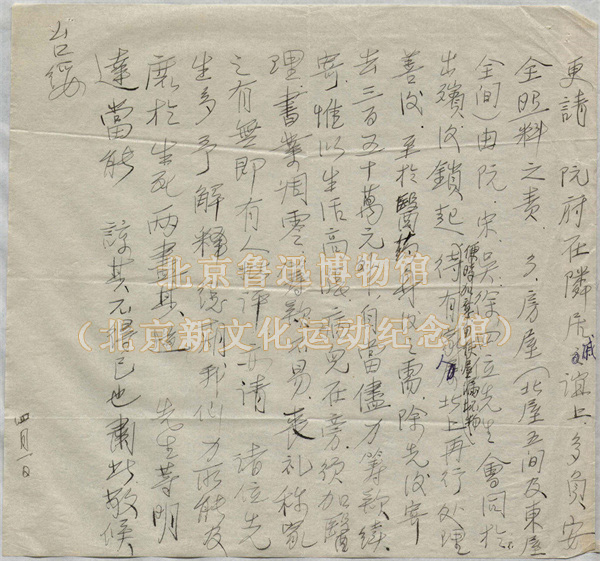 更請　阮府在隣居誼上，多負安
全照料之責。多房屋（北屋五間及東屋
全間）由阮、宋、吳、徐四位先生會同於
出殯後鎖起，待有家人北上再行處理
善後。至於醫葯材具之需，除先後寄
去三百五十萬元外，自當儘力籌款續
寄。惟以生活高漲，病兒在旁，須加醫
理，書業凋零，籌款不易，喪禮稱家
之有無，即有人批評，亦請　諸位先
生多予解釋，總期我們力所能及，
庶於生死兩盡其　　先生等明
達，當能　諒其不得已也。肅此敬候
台綏
四月一日
北京鲁迅博物馆
（北京新文化运动纪念馆）